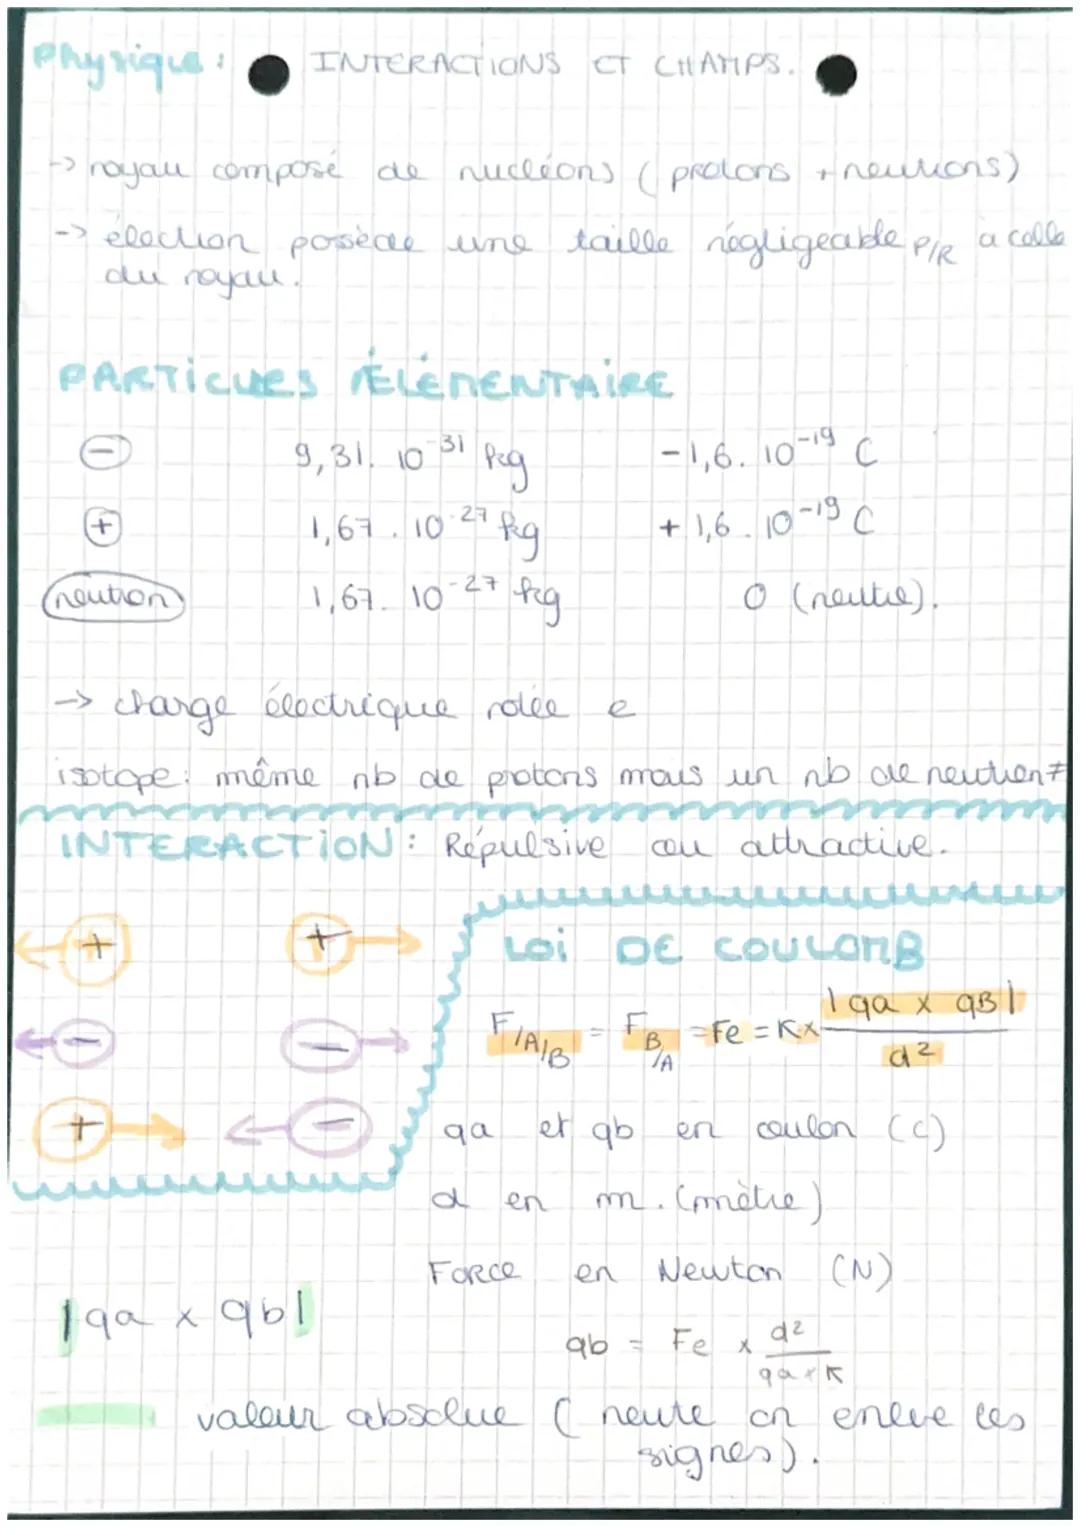 Physique : INTERACTIONS ET CHAMPS.
-> noyau composé de nucléons ( protons + neutrons)
-> électron possède une taille négligeable P/R à celle
du noyau.
PARTICULES ÉLÉMENTAIRE
- 9,31. 10⁻³¹ kg -1,6. 10⁻¹⁹ C
+ 1,67. 10⁻²⁷ kg + 1,6. 10⁻¹⁹ C
neutron 1,67. 10⁻²⁷ kg 0 (neutre).
-> charge électrique notée e
isotope: même nb de protons mais un nb de neutron ≠
INTERACTION : Répulsive ou attractive.
+ +
- -
+ -
LOI DE COULOMB
F/A/B = F B/A = Fe = K x |qa x qB| / d²
qa et qb en coulon (C)
d en m. (mètre)
Force en Newton (N)
|qa x qb|
qb = Fe x d² / qa x K
valeur absolue ( neute on enleve les
signes).